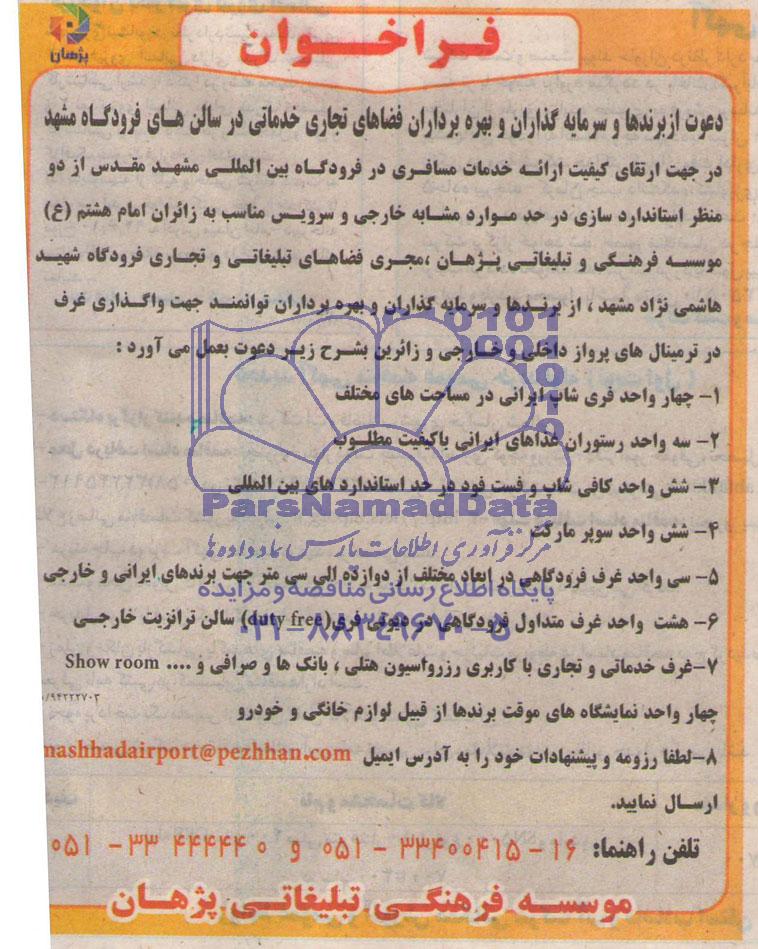 پژهان
فراخوان
دعوت ازبرندها و سرمایه گذاران و بهره برداران فضاهای تجاری خدماتی در سالن های فرودگاه مشهد
در جهت ارتقای کیفیت ارائه خدمات مسافری در فرودگاه بین المللی مشهد مقدس از دو
منظر استاندارد سازی در حد موارد مشابه خارجی و سرویس مناسب به زائران امام هشتم (ع)
موسسه فرهنگی و تبلیغاتی پژهان ،مجری فضاهای تبلیغاتی و تجاری فرودگاه شهید
هاشمی نژاد مشهد ، از برندها و سرمایه گذاران و بهره برداران توانمند جهت واگذاری غرف
در ترمینال های پرواز داخلی و خارجی و زائرین بشرح زیر دعوت بعمل می آورد :
۱- چهار واحد فری شاپ ایرانی در مساحت های مختلف
۲- سه واحد رستوران غذاهای ایرانی باکیفیت مطلوب
۳- شش واحد کافی شاپ و فست فود در حد استاندارد های بین المللی
ParsNamadData
۴- شش واحد سوپر مارکت
مرکز فرآوری اطلاعات پارس نماد داده ها
۵- سی واحد غرف فرودگاهی در ابعاد مختلف از دوازده الی سی متر جهت برندهای ایرانی و خارجی
پایگاه اطلاع رسانی مناقصه و مزایده
۶- هشت واحد غرف متداول فرودگاهی در دیوتی فری(duty free) سالن ترانزیت خارجی
۰۲۱-۸۸۳۴۹۶۷۰-۵
۷-غرف خدماتی و تجاری با کاربری رزرواسیون هتلی ، بانک ها و صرافی و .... Show room
/۹۴۲۲۲۷۰۳
چهار واحد نمایشگاه های موقت برندها از قبیل لوازم خانگی و خودرو
۸-لطفا رزومه و پیشنهادات خود را به آدرس ایمیل mashhadairport@pezhhan.com
ارسال نمایید.
تلفن راهنما: ۱۶ - ۳۳۴۰۰۴۱۵ - ۰۵۱ و ۳۳۴۴۴۴۴۰ - ۰۵۱
موسسه فرهنگی تبلیغاتی پژهان